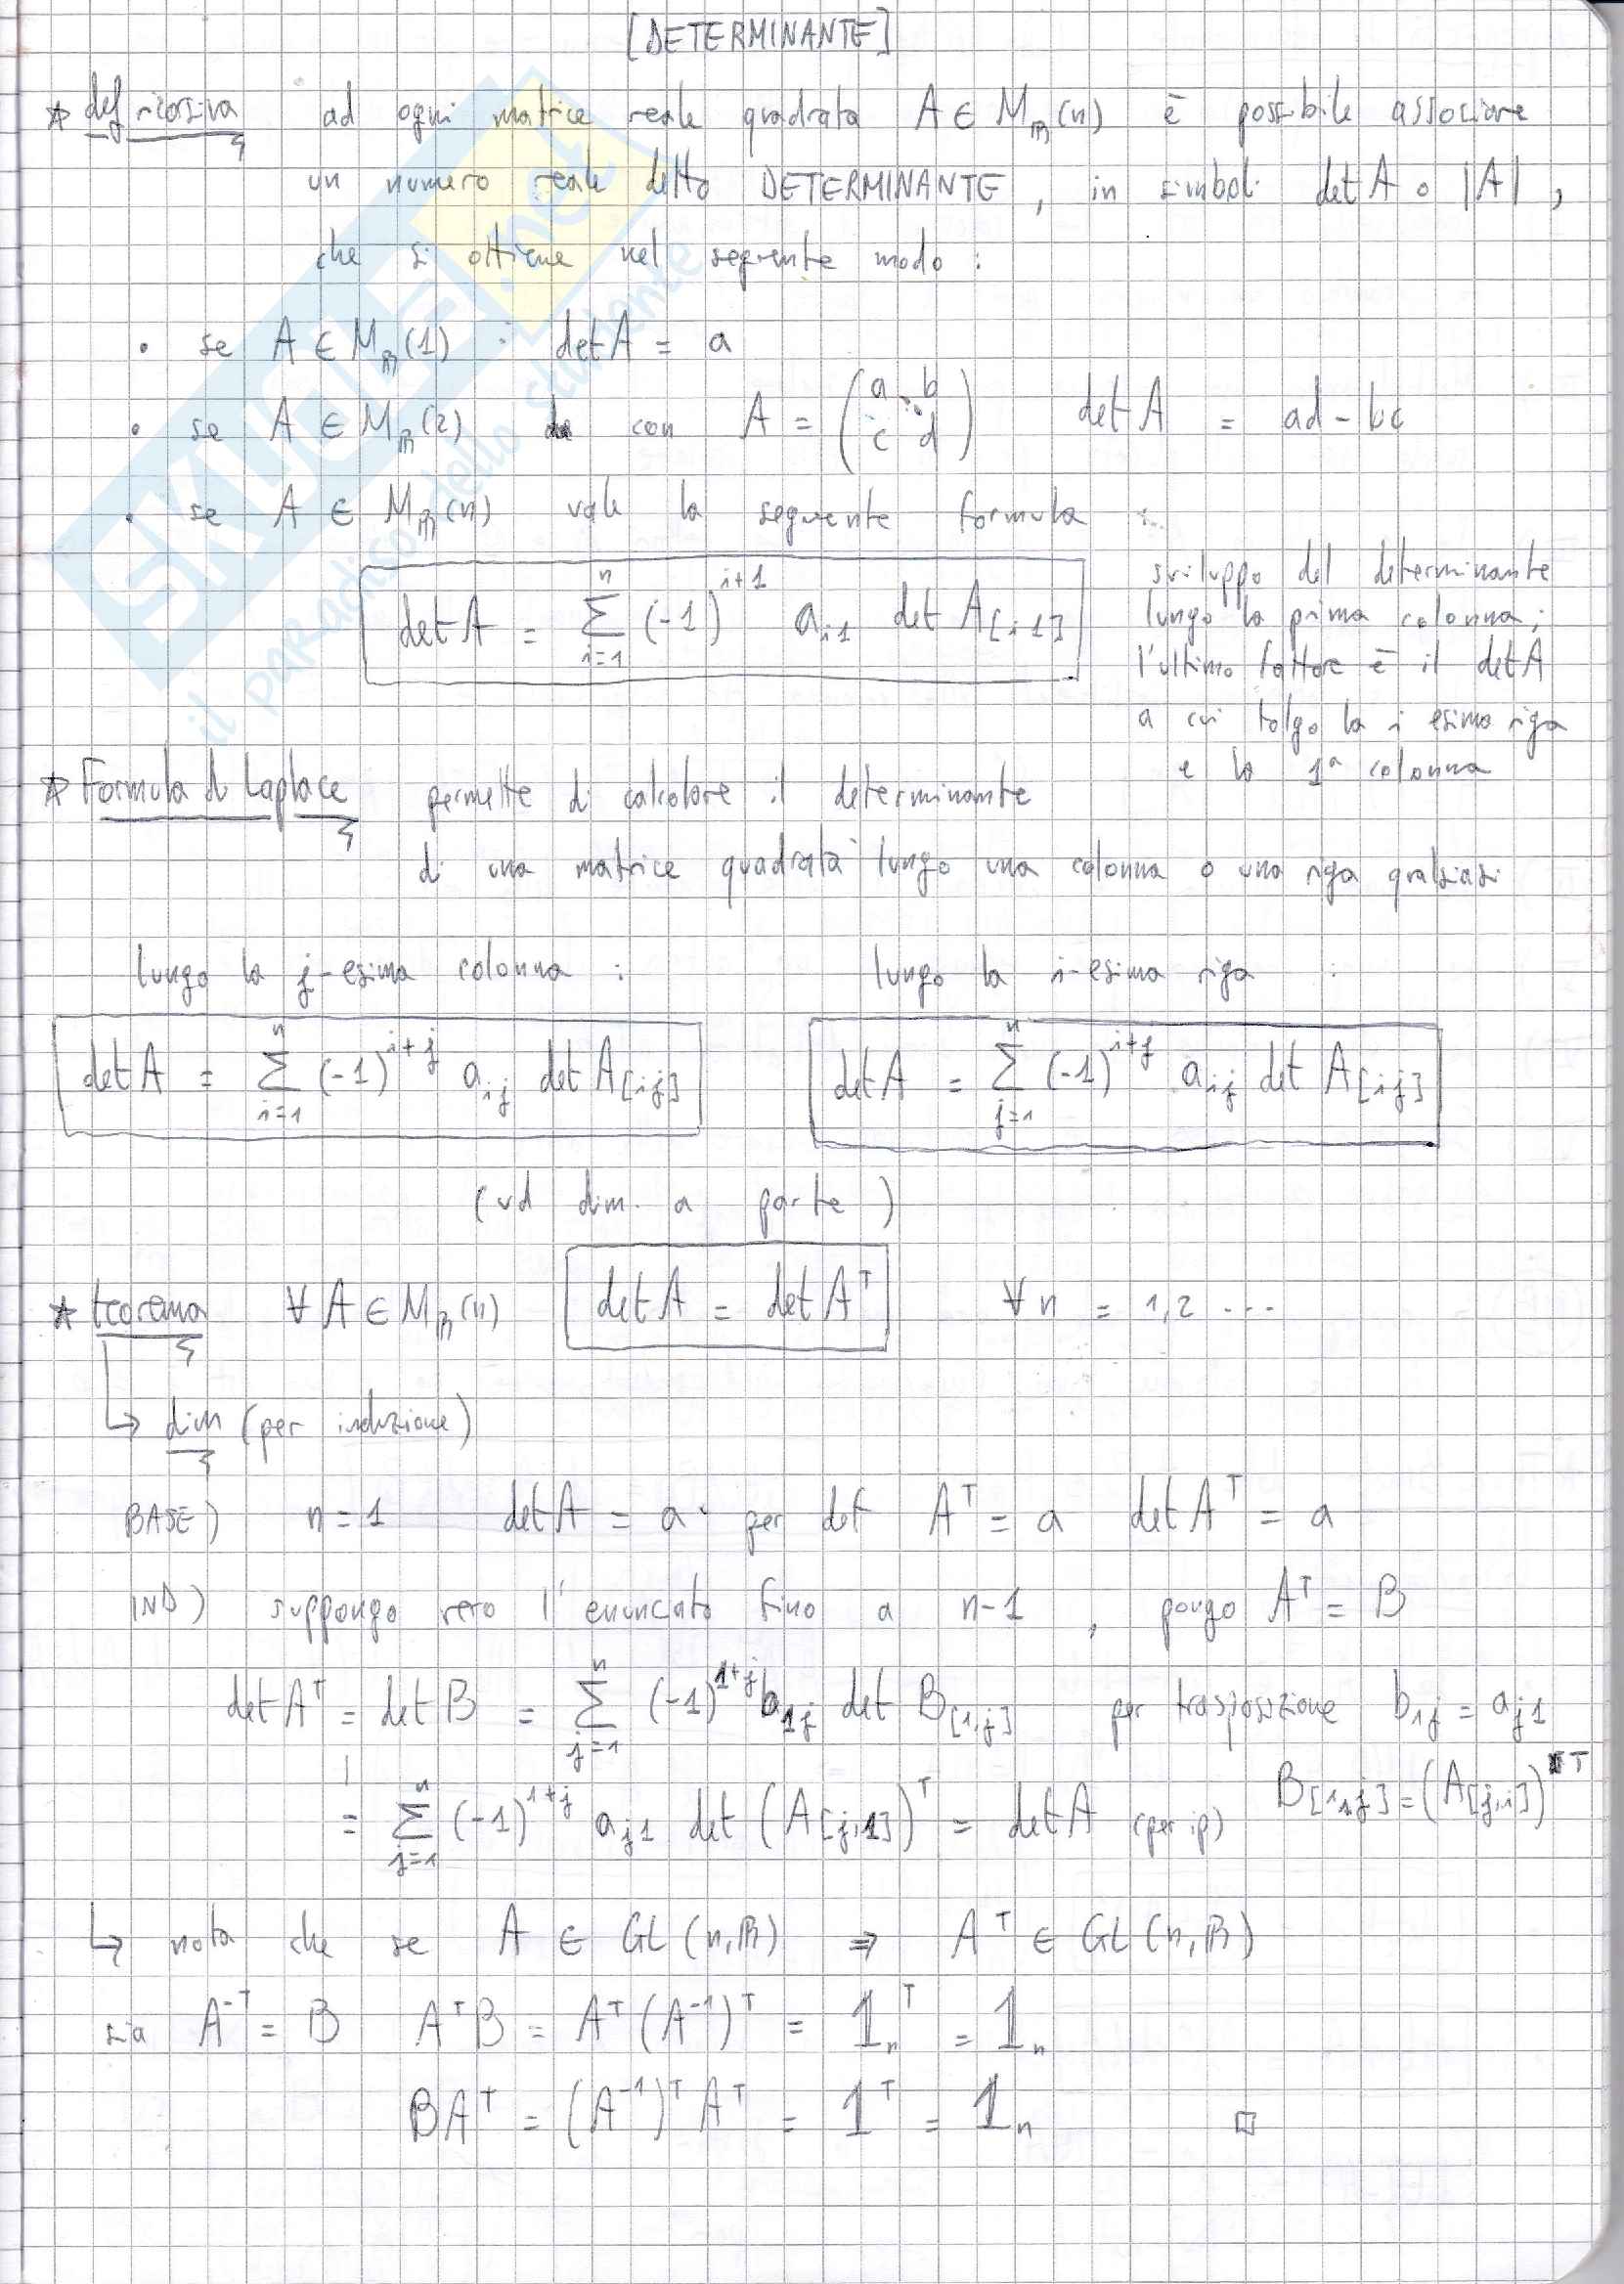 [DETERMINANTE]
* def ricorsiva ad ogni matrice reale quadrata A ∈ M_ℝ(n) è possibile associare
un numero reale detto DETERMINANTE, in simboli det A o |A|,
che si ottiene nel seguente modo:
• se A ∈ M_ℝ(1) : det A = a
• se A ∈ M_ℝ(2) con A = (a b; c d) det A = ad - bc
• se A ∈ M_ℝ(n) vale la seguente formula :
det A = Σ_{i=1}^{n} (-1)^{i+1} a_{i1} det A_{[i1]}
sviluppo del determinante
lungo la prima colonna;
l'ultimo fattore è il det A
a cui tolgo la i esima riga
e la 1ª colonna
* Formula di Laplace permette di calcolare il determinante
di una matrice quadrata lungo una colonna o una riga qualsiasi
lungo la j-esima colonna : lungo la i-esima riga :
det A = Σ_{i=1}^{n} (-1)^{i+j} a_{ij} det A_{[ij]} det A = Σ_{j=1}^{n} (-1)^{i+j} a_{ij} det A_{[ij]}
(vd dim. a parte)
* teorema ∀ A ∈ M_ℝ(n) det A = det A^T ∀ n = 1,2 ...
↳ dim (per induzione)
BASE) n = 1 det A = a per def A^T = a det A^T = a
IND) suppongo vero l'enunciato fino a n-1 , pongo A^T = B
det A^T = det B = Σ_{j=1}^{n} (-1)^{1+j} b_{1j} det B_{[1,j]} per trasposizione b_{1j} = a_{j1}
= Σ_{j=1}^{n} (-1)^{1+j} a_{j1} det (A_{[j,1]})^T = det A (per ip) B_{[1,j]} = (A_{[j,1]})^T
↳ nota che se A ∈ GL(n,ℝ) ⇒ A^T ∈ GL(n,ℝ)
sia A^{-T} = B A^T B = A^T (A^{-1})^T = 𝟙_n^T = 𝟙_n
BA^T = (A^{-1})^T A^T = 𝟙^T = 𝟙_n □
SKUOLA.net
il paradiso dello studente